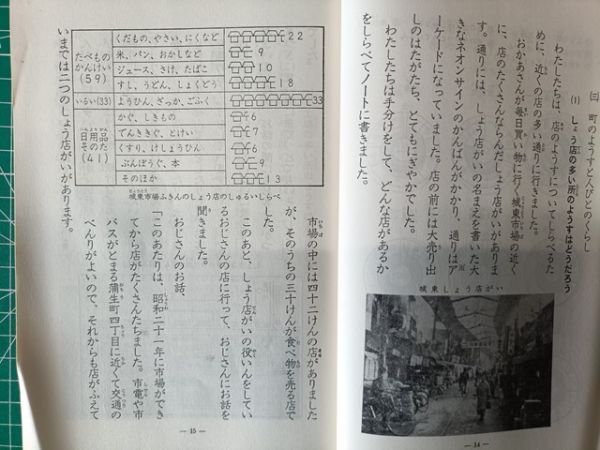 ㈢ 町のようすと人びとのくらし
⑴ しょう店の多い所のようすはどうだろう
わたしたちは、店のようすについてしらべるた
めに、近くの店の多い通りに行きました。
おかあさんが毎日買い物に行く城東市場の近く
に、店のたくさんならんだしょう店がいがありま
す。通りには、しょう店がいの名まえを書いた大
きなネオンサインのかんばんがかかり、通りはア
ーケードになっていました。店の前には大売り出
しのはたがたち、とてもにぎやかでした。
わたしたちは手分けをして、どんな店があるか
をしらべてノートに書きました。
城東しょう店がい
— 14 —
たべもの
かんけい
(59)
くだもの、やさい、にくなど 22
米、パン、おかしなど 9
ジュース、さけ、たばこ 10
すし、うどん、しょくどう 18
いるい(33) ようひん、ざっか、ごふく 33
日用品
そのた
(41)
かぐ、しきもの 6
でんきぐ、とけい 7
くすり、けしょうひん 6
ぶんぼうぐ、本 9
そのほか 13
城東市場ふきんのしょう店のしゅるいしらべ
市場の中には四十二けんの店がありました
が、そのうちの三十けんが食べ物を売る店で
した。
このあと、しょう店がいの役いんをしてい
るおじさんの店に行って、おじさんにお話を
聞きました。
おじさんのお話、
「このあたりは、昭和二十一年に市場ができ
てから店がたくさんたちました。市電や市
バスがとまる蒲生町四丁目に近くて交通の
べんりがよいので、それからも店がふえて
いまでは二つのしょう店がいがあります。
— 15 —